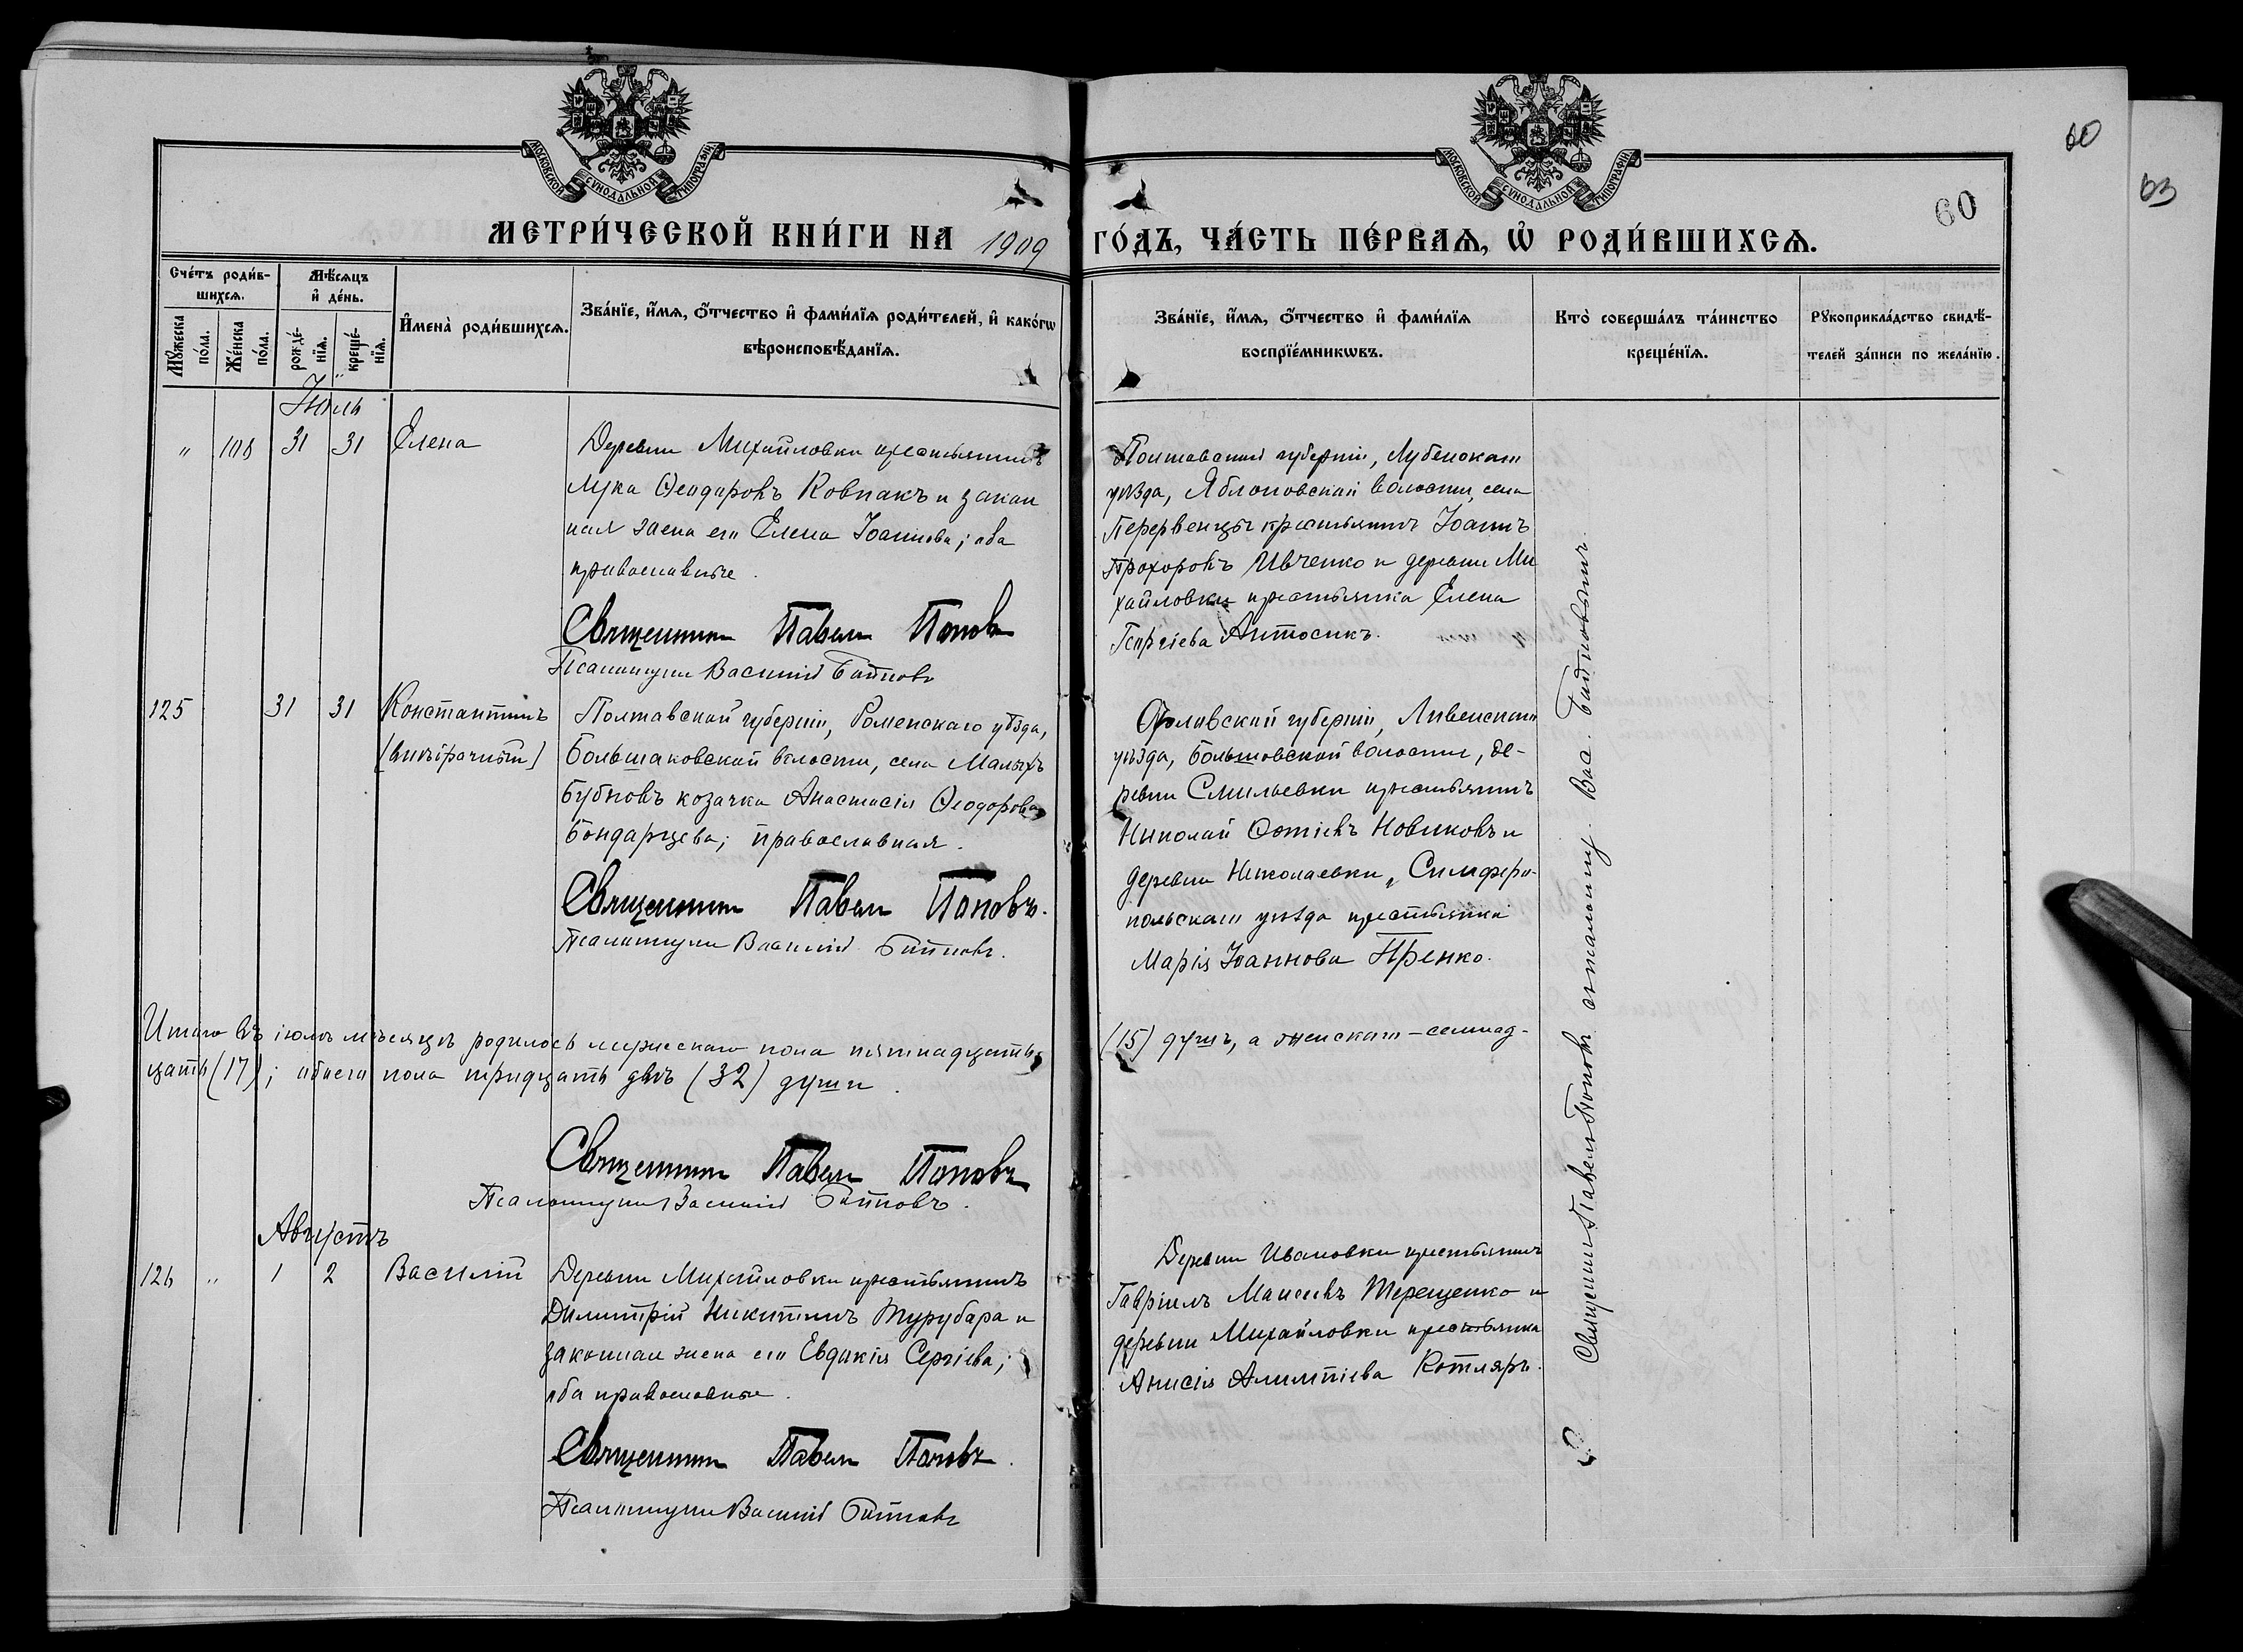 60
63
60
МОСКОВСКОЙ СУНОДАЛЬНОЙ ТИПОГРАФІИ
МОСКОВСКОЙ СУНОДАЛЬНОЙ ТИПОГРАФІИ
МЕТРИ́ЧЕСКОЙ КНИ́ГИ НА 1909
ГО́ДЪ, ЧА́СТЬ ПЕ́РВАѦ, Ѿ РОДИ́ВШИХСѦ.
Сче́тъ роди́в-
шихсѧ.
Мѣ́сѧцъ
и҆ де́нь.
Мꙋ́жеска по́ла.
Же́нска по́ла.
рожде́-нїѧ.
креще́-нїѧ.
И҆мена̀ роди́вшихсѧ.
Зва́нїе, и҆́мѧ, ѻ҆́тчество и҆ фами́лїѧ роди́телей, и҆ како́гѡ
вѣроисповѣ́данїѧ.
Зва́нїе, и҆́мѧ, ѻ҆́тчество и҆ фами́лїѧ
воспрїе́мникѡвъ.
Кто̀ соверша́лъ та́инство
креще́нїѧ.
Рꙋкоприкла́дство свидѣ́-
телей за́писи по жела́нїю.
Іюль
" 108 31 31 Елена
Деревни Михайловки крестьянинъ
Лука Ѳеодоровъ Ковпакъ и закон
ная жена его Елена Іоаннова; оба
православные.
Священникъ Павелъ Поповъ
Псаломщикъ Василий
Полтавской губерніи, Лубенскаго
уѣзда, Яблоновской волости, села
Перервенцы крестьянинъ Іоаннъ
Прохоровъ Ивченко и деревни Ми
хайловки крестьянка Елена
Георгіева Антосикъ.
125 31 31 Константинъ
(внѣбрачный)
Полтавской губерніи, Роменскаго уѣзда,
Большаковской волости, села Малыхъ
Бубновъ козачка Анастасія Ѳеодорова
Бондарцева; православная.
Священникъ Павелъ Поповъ.
Псаломщикъ Василий
Орловской губерніи, Ливенскаго
уѣзда, волости, де-
ревни крестьянинъ
Николай Фотіевъ Новиковъ и
деревни Николаевки, Симферо-
польскаго уѣзда крестьянка
Марія Іоаннова
Итого въ іюлѣ мѣсяцѣ родилось мужескаго пола пятнадцать
(15) душъ, а женскаго – семнад-
цать (17); обоего пола тридцать двѣ (32) души.
Священникъ Павелъ Поповъ
Псаломщикъ Василий
Августъ
126 " 1 2 Василій
Деревни Михайловки крестьянинъ
Димитрій Никитинъ Турубара и
законная жена его Евдокія Сергіева;
оба православные.
Священникъ Павелъ Поповъ.
Псаломщикъ Василий
Деревни Ивановки крестьянинъ
Гавріилъ Моисеевъ Терещенко и
деревни Михайловки крестьянка
Анисія Алимпіева Котляръ.
Священникъ Павелъ Поповъ съ псаломщ. Вас.